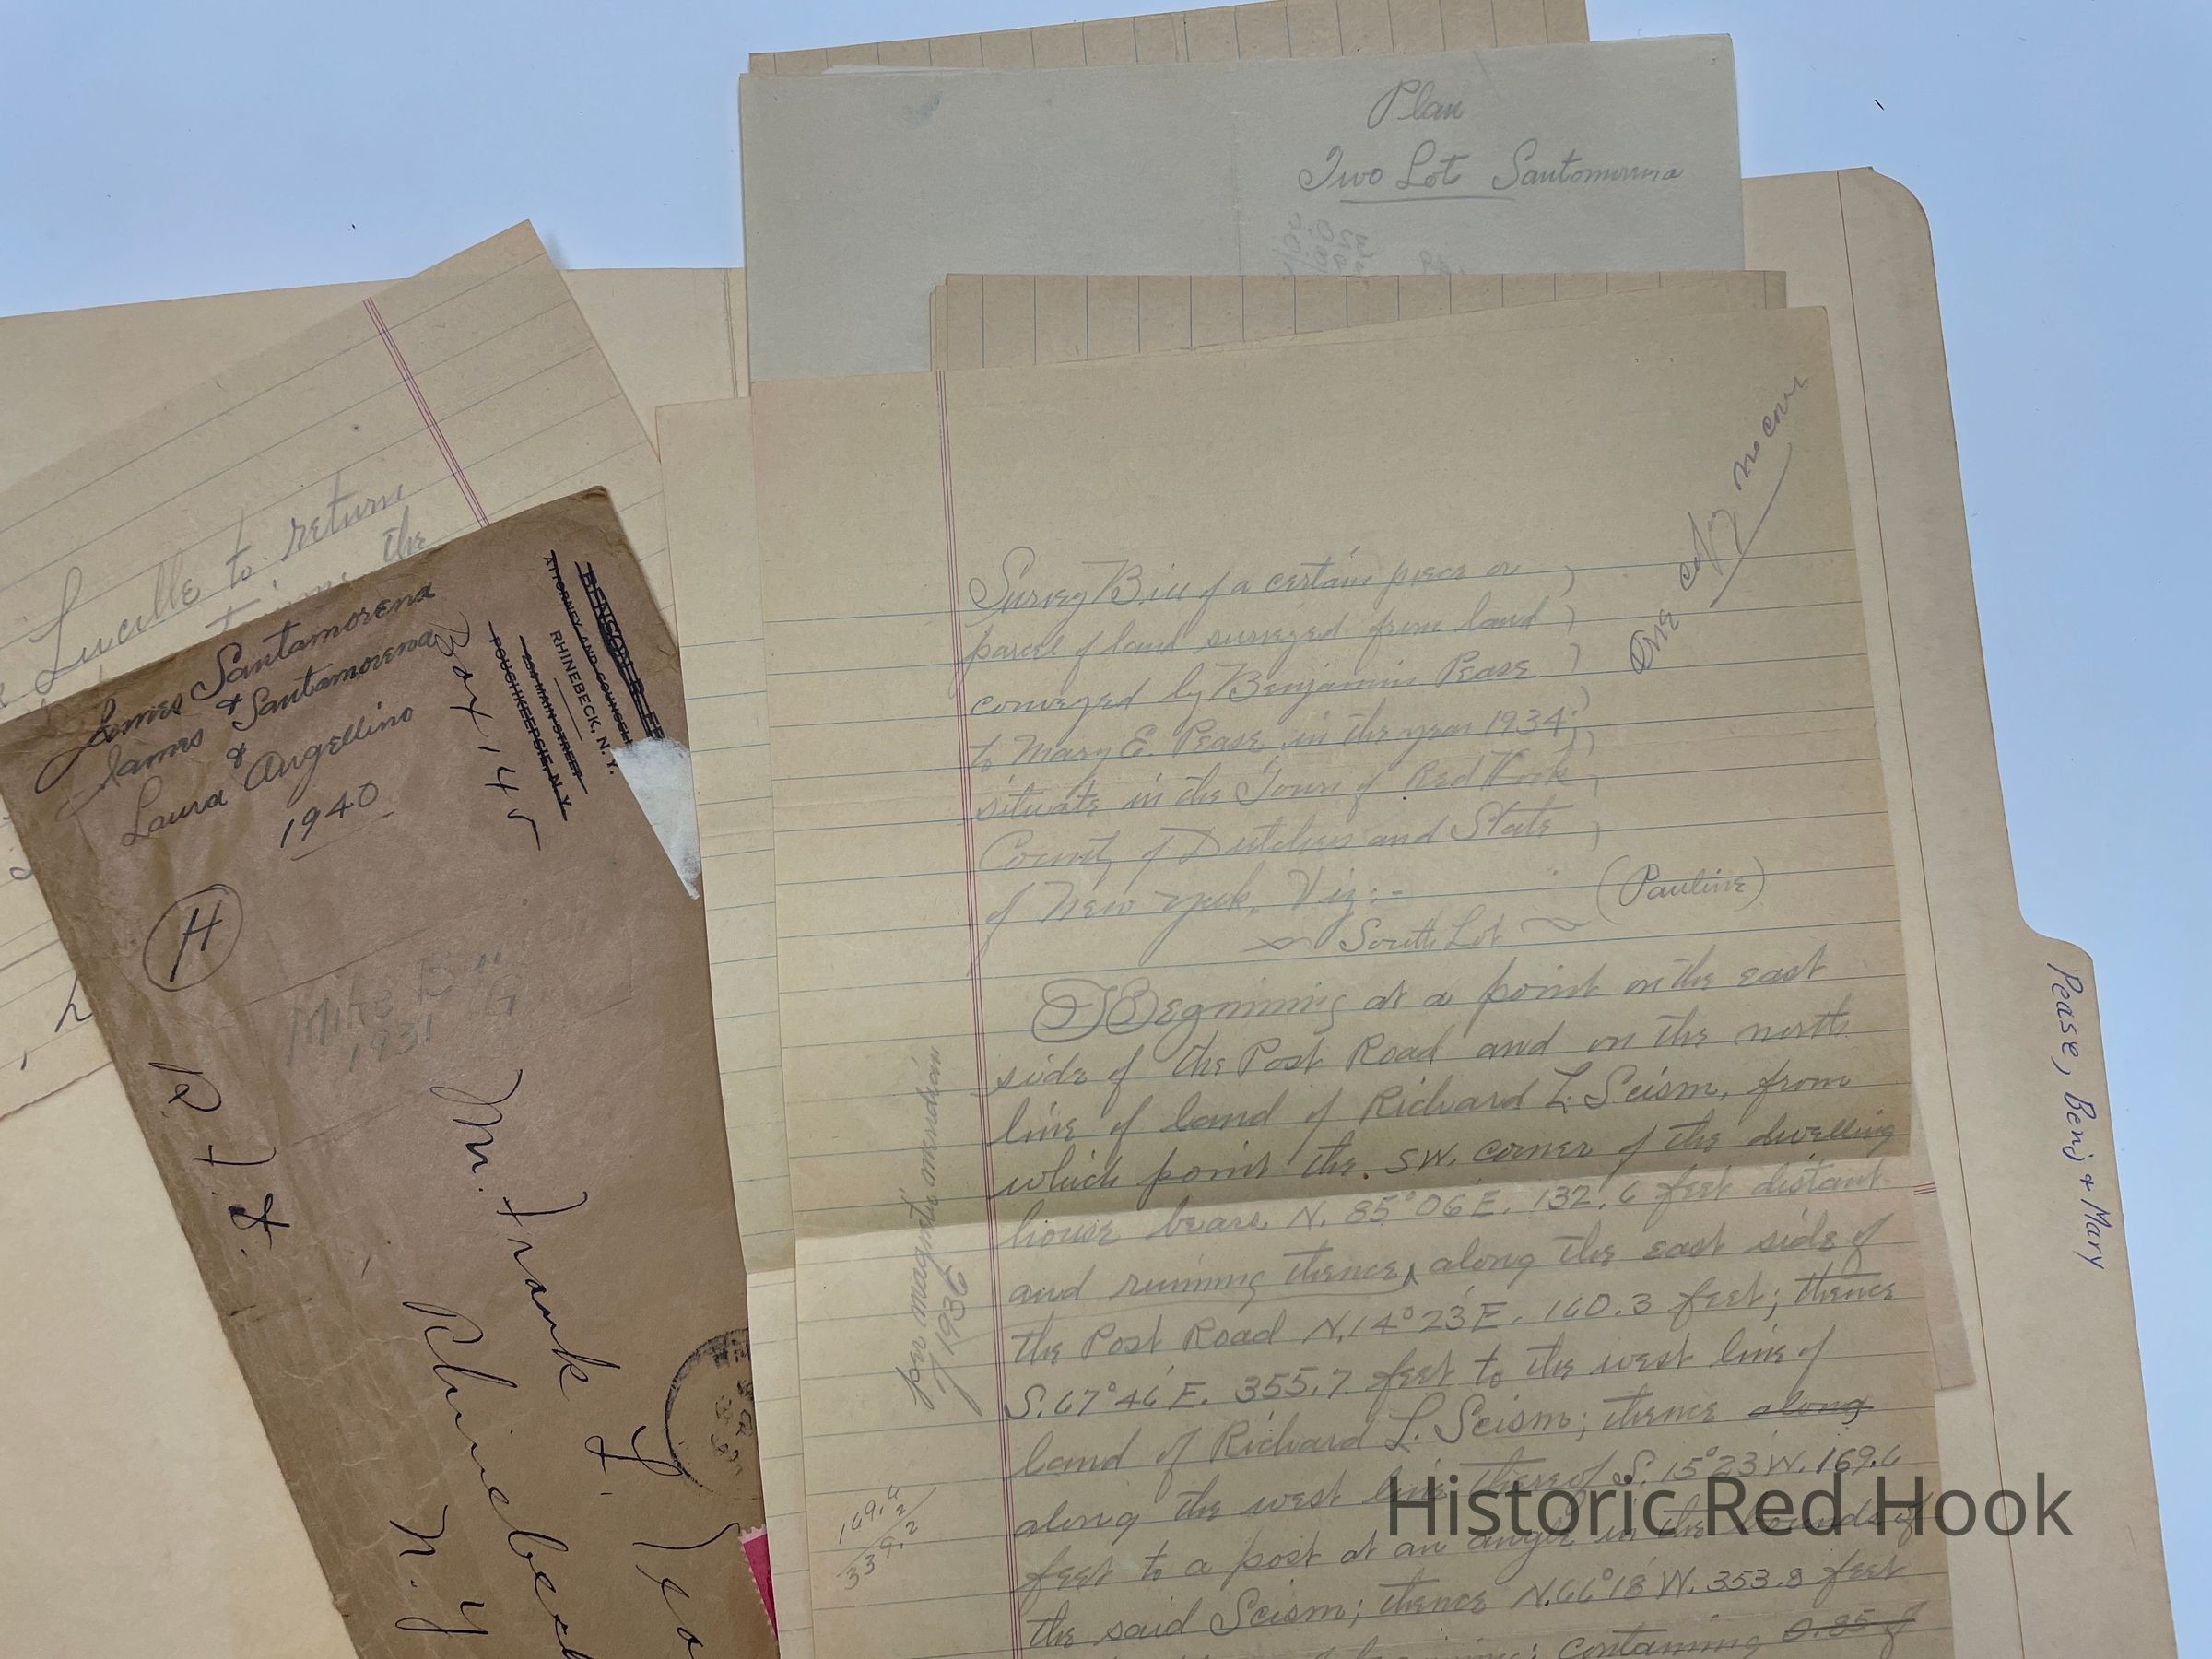 Plan
Two Lot Santomorena
Lucille to return
the
James Santamorena
&
James Santamorena
&
Laura Angellino
1940
Box 145
BENSON R.
ATTORNEY AND COUNSEL
RHINEBECK, N. Y.
MAIN STREET
POUGHKEEPSIE, N.Y.
H
Mike
1931
R. F. D.
Mr. Frank L.
Rhinebeck
N. Y
One copy no cove
Survey Bill of a certain piece or
parcel of land surveyed from land
conveyed by Benjamin Pease
to Mary E. Pease, in the year 1934;
situate in the Town of Red Hook
County of Dutchess and State
of New York, Viz:-
(Pauline)
South Lot
Beginning at a point on the east
side of the Post Road and on the north
line of land of Richard L. Scism, from
which point the SW. corner of the dwelling
house bears N. 85°06'E. 132.6 feet distant
and running thence, along the east side of
the Post Road N. 14°23'E. 160.3 feet; thence
S. 67°46'E. 355.7 feet to the west line of
land of Richard L. Scism; thence along
along the west line thereof S. 15°23'W. 169.6
feet to a post at an angle in the bounds of
the said Scism; thence N. 66°18'W. 353.8 feet
containing 0.85 of
per magnetic meridian
of 1936
169.6
2
339.2
Pease, Benj & Mary
Historic Red Hook